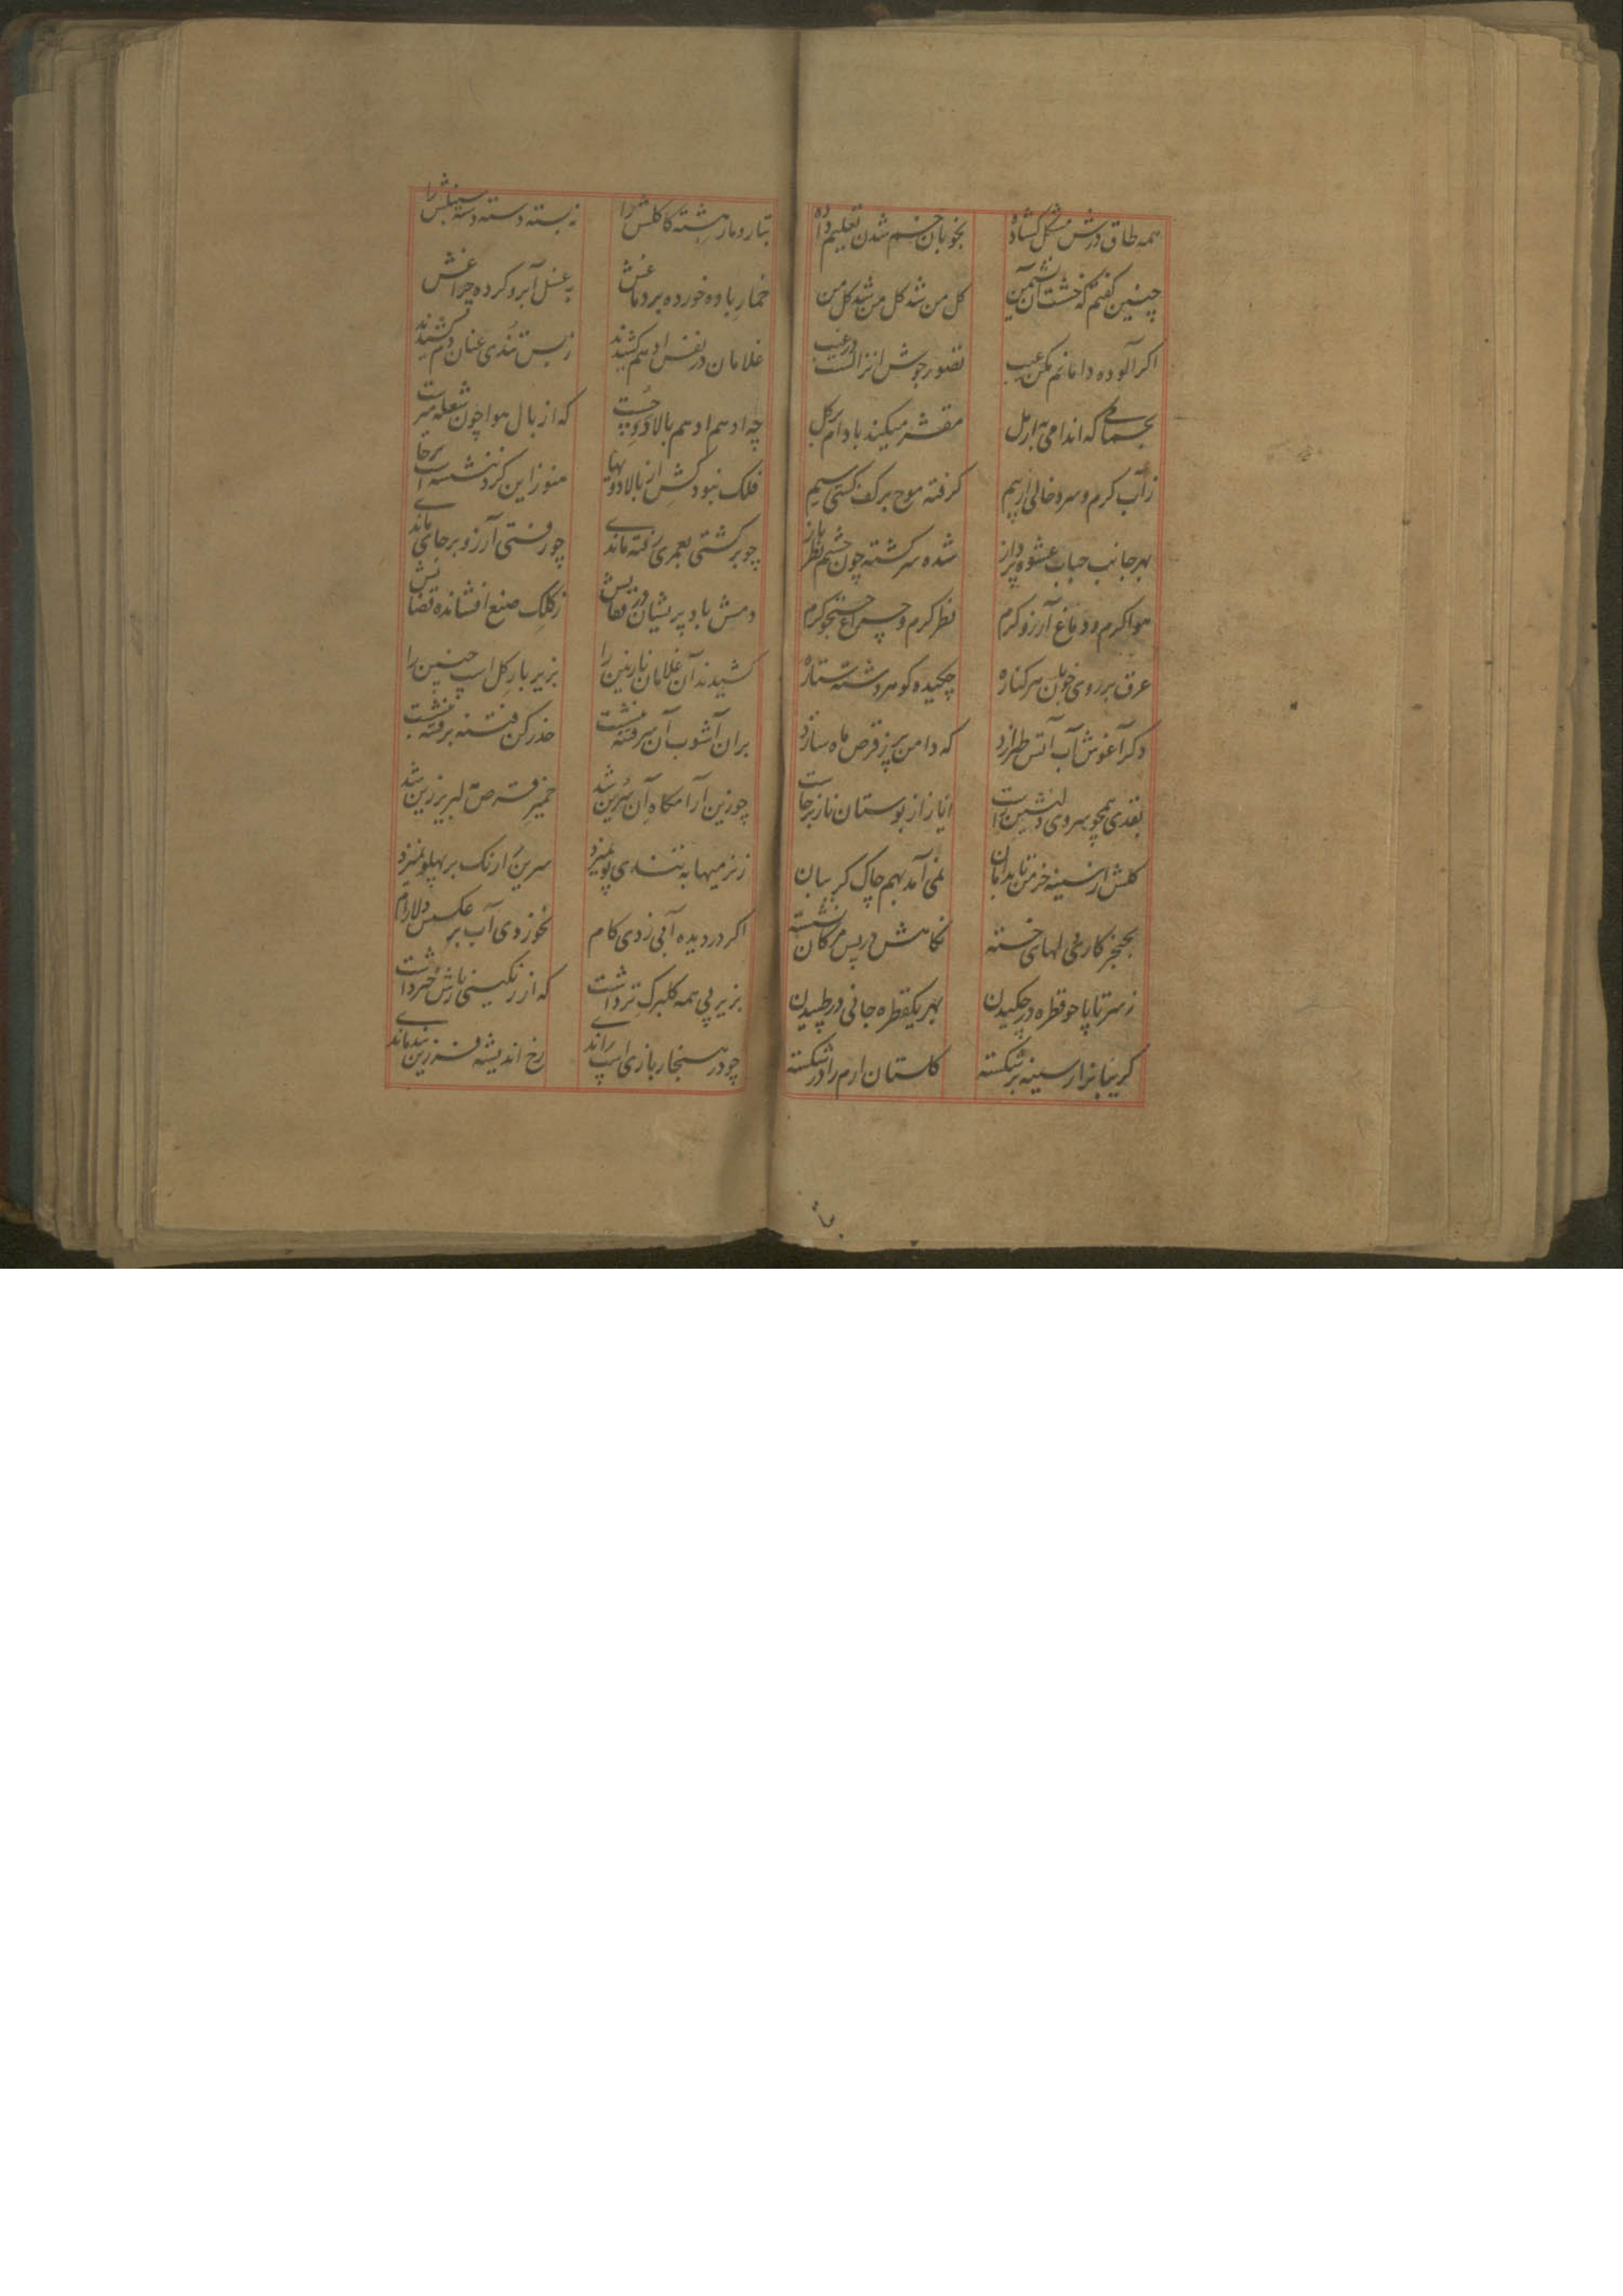 همه طاق درش مشکل کشاده بخوبان خم شدن تعلیم داده
چنین گفتم که خشت آن نشیمن گل من شد گل من شد گل من
اگر آلوده دامانم مکن عیب تصور جوش انزالست در غیب
بحمامی که اندامی به ار مل مقشر میکند بادام بر گل
ز آب گرم و سرد خالی از بیم گرفته موج بر کف کشتی سیم
بهر جانب حباب عشوه پرداز شده سرگشته چون چشم نظر باز
هوا گرم و دماغ آرزو گرم نظر گرم و چراغ جستجو گرم
عرق بر روی خوبان هر کناره چکیده گوهر و شسته ستاره
دگر آغوش آب آتش طرازد که دامن پر ز قرص ماه سازد
بقدی همچو سروی دلنشین است ایاز از بوستان ناز برخاست
گلش از سینه خرمن تا بدامان نمی آمد بهم چاک گریبان
بخنجر کاری دلهای خسته نگاهش در پس مژگان نشسته
ز سر تا پا چو قطره در چکیدن بهر یکقطره جانی در طپیدن
گریبانرا ز سینه بر شکسته گلستان ارم را در شکسته
بتار و مار هشته کاکلش را نه بسته دسته دسته سنبلش را
خمار باده خورده بر دماغش به غسل آبرو کرده چراغش
غلامان در نفس ادهم کشیدند ز بس تندی عنان دم کشیدند
چه ادهم ادهم بالا دو و چست که از بال هوا چون شعله میرست
فلک نبود کش از بالا دویها هنوز این گرد ننشسته است بر جا
چو بر گشتی بعمری رفته ماندی چو رفتی آرزو بر جای ماندی
دمش باد پریشان در قفایش ز کلک صنع افشانده قضایش
کشیدند آن غلامان نازنین را بزیر بار گل اسپ چنین را
بران آشوب آن سر فتنه بنشست حذر کن فتنه بر فتنه بنشست
چو زین آرامگاه آن سرین شد خمیر قرص لبریز زین شد
ز نرمیها به تندی پو نمیزد سرین را رنگ بر پهلو نمیزد
اگر در دیده آبی زدی گام نخوردی آب بر عکس دلارام
بزیر پی همه گلبرگ تر داشت که از رنگینی بارش خبر داشت
چو در هنجار بازی اسپ راندی رخ اندیشه فرزین بند ماندی